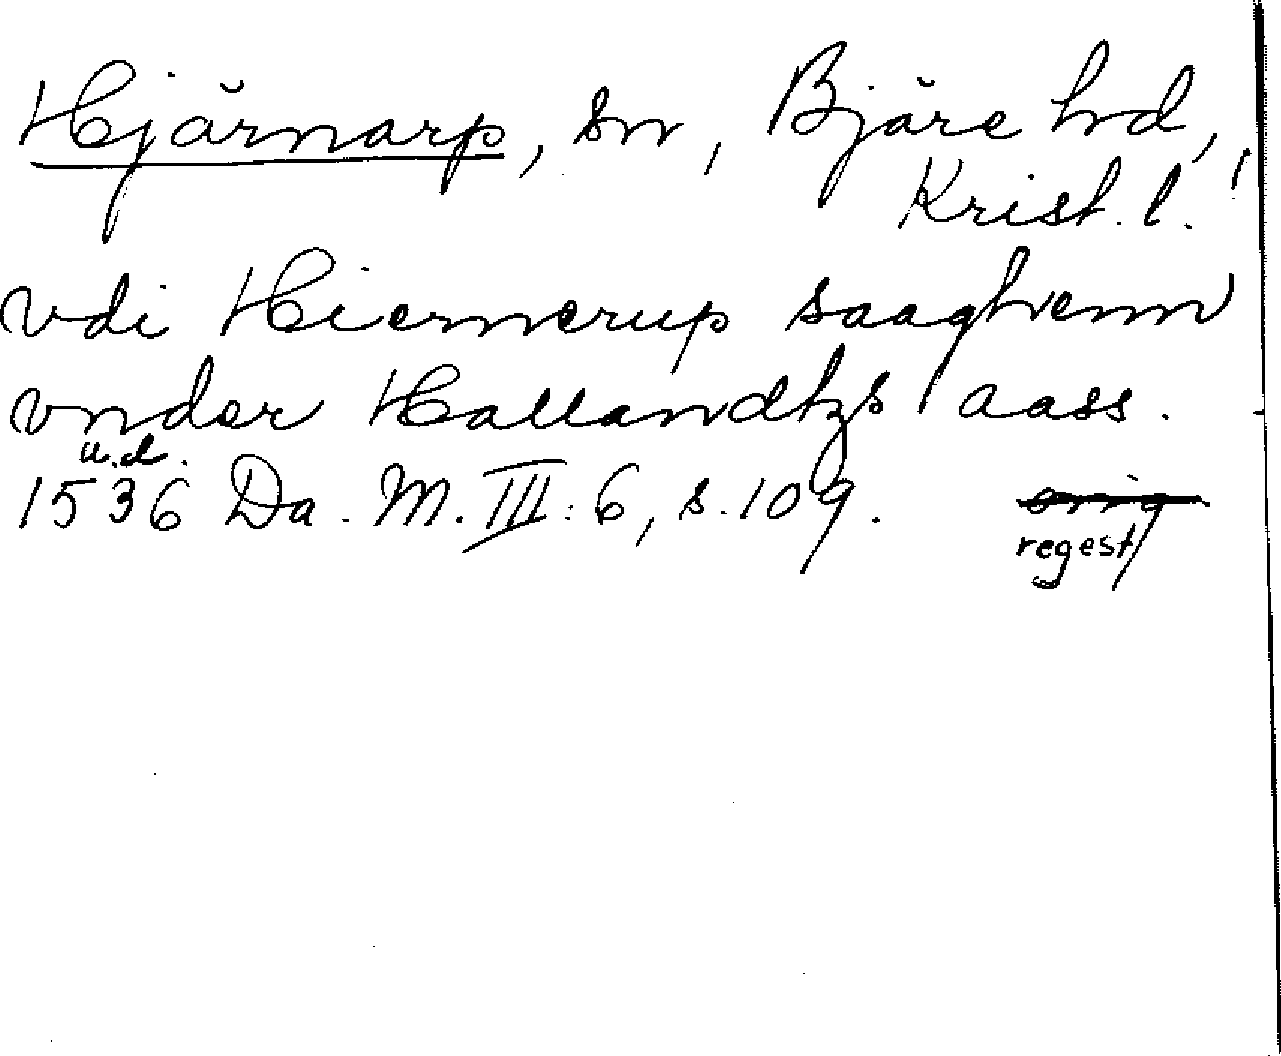 Hjärnarp, sn, Bjäre hd,
Krist. l.
vdi Hiernerup saaghenn
vnder Hallandtzs aass.
u.d.
1536 Da. M. III: 6, s. 109. orig
regest